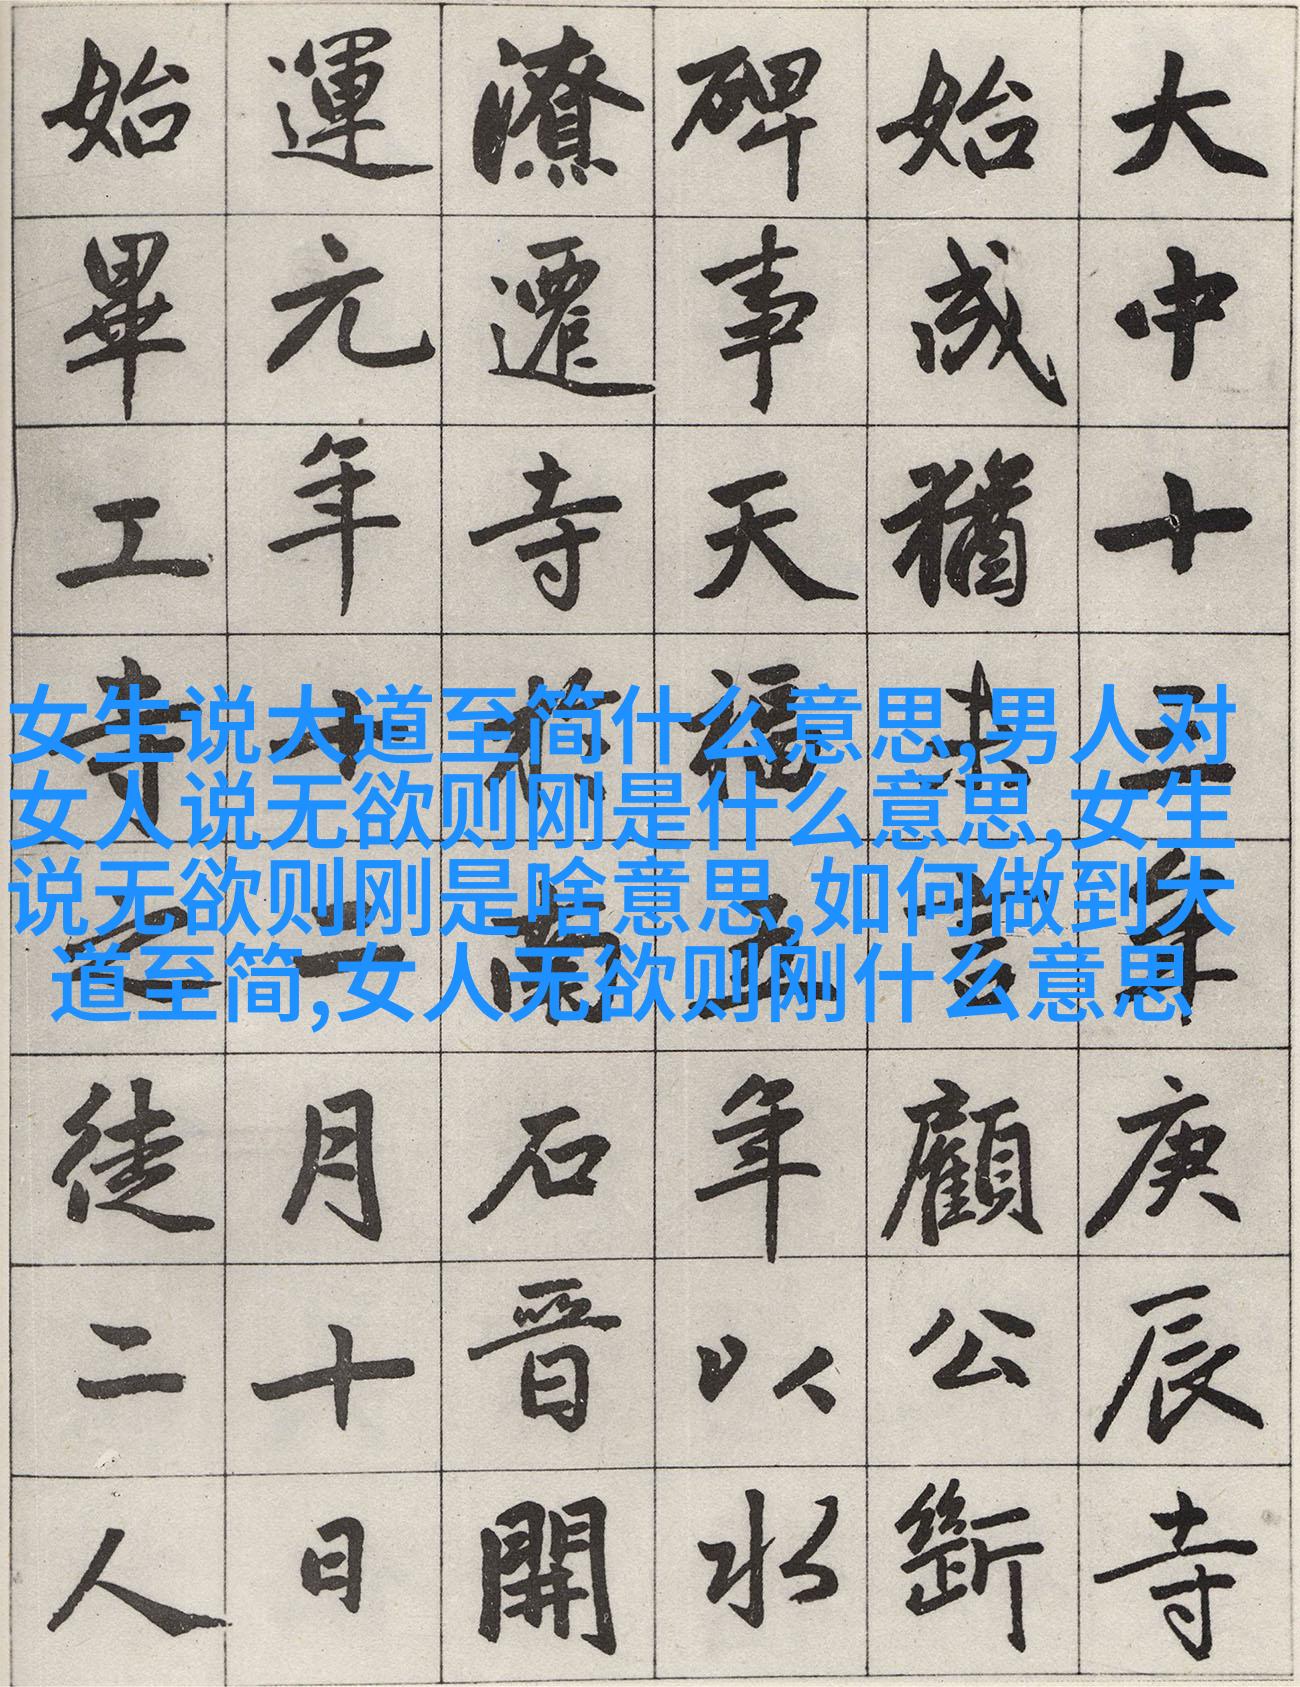 大中十五年庚辰寺
始成猶言顧公斷
碑事天福五年以水
潦遷寺南石晉開
運元年十二月十日
始畢工寺之徒二人
女生说大道至简什么意思,男人对
女人说无欲则刚是什么意思,女生
说无欲则刚是啥意思,如何做到大
道至简,女人无欲则刚什么意思